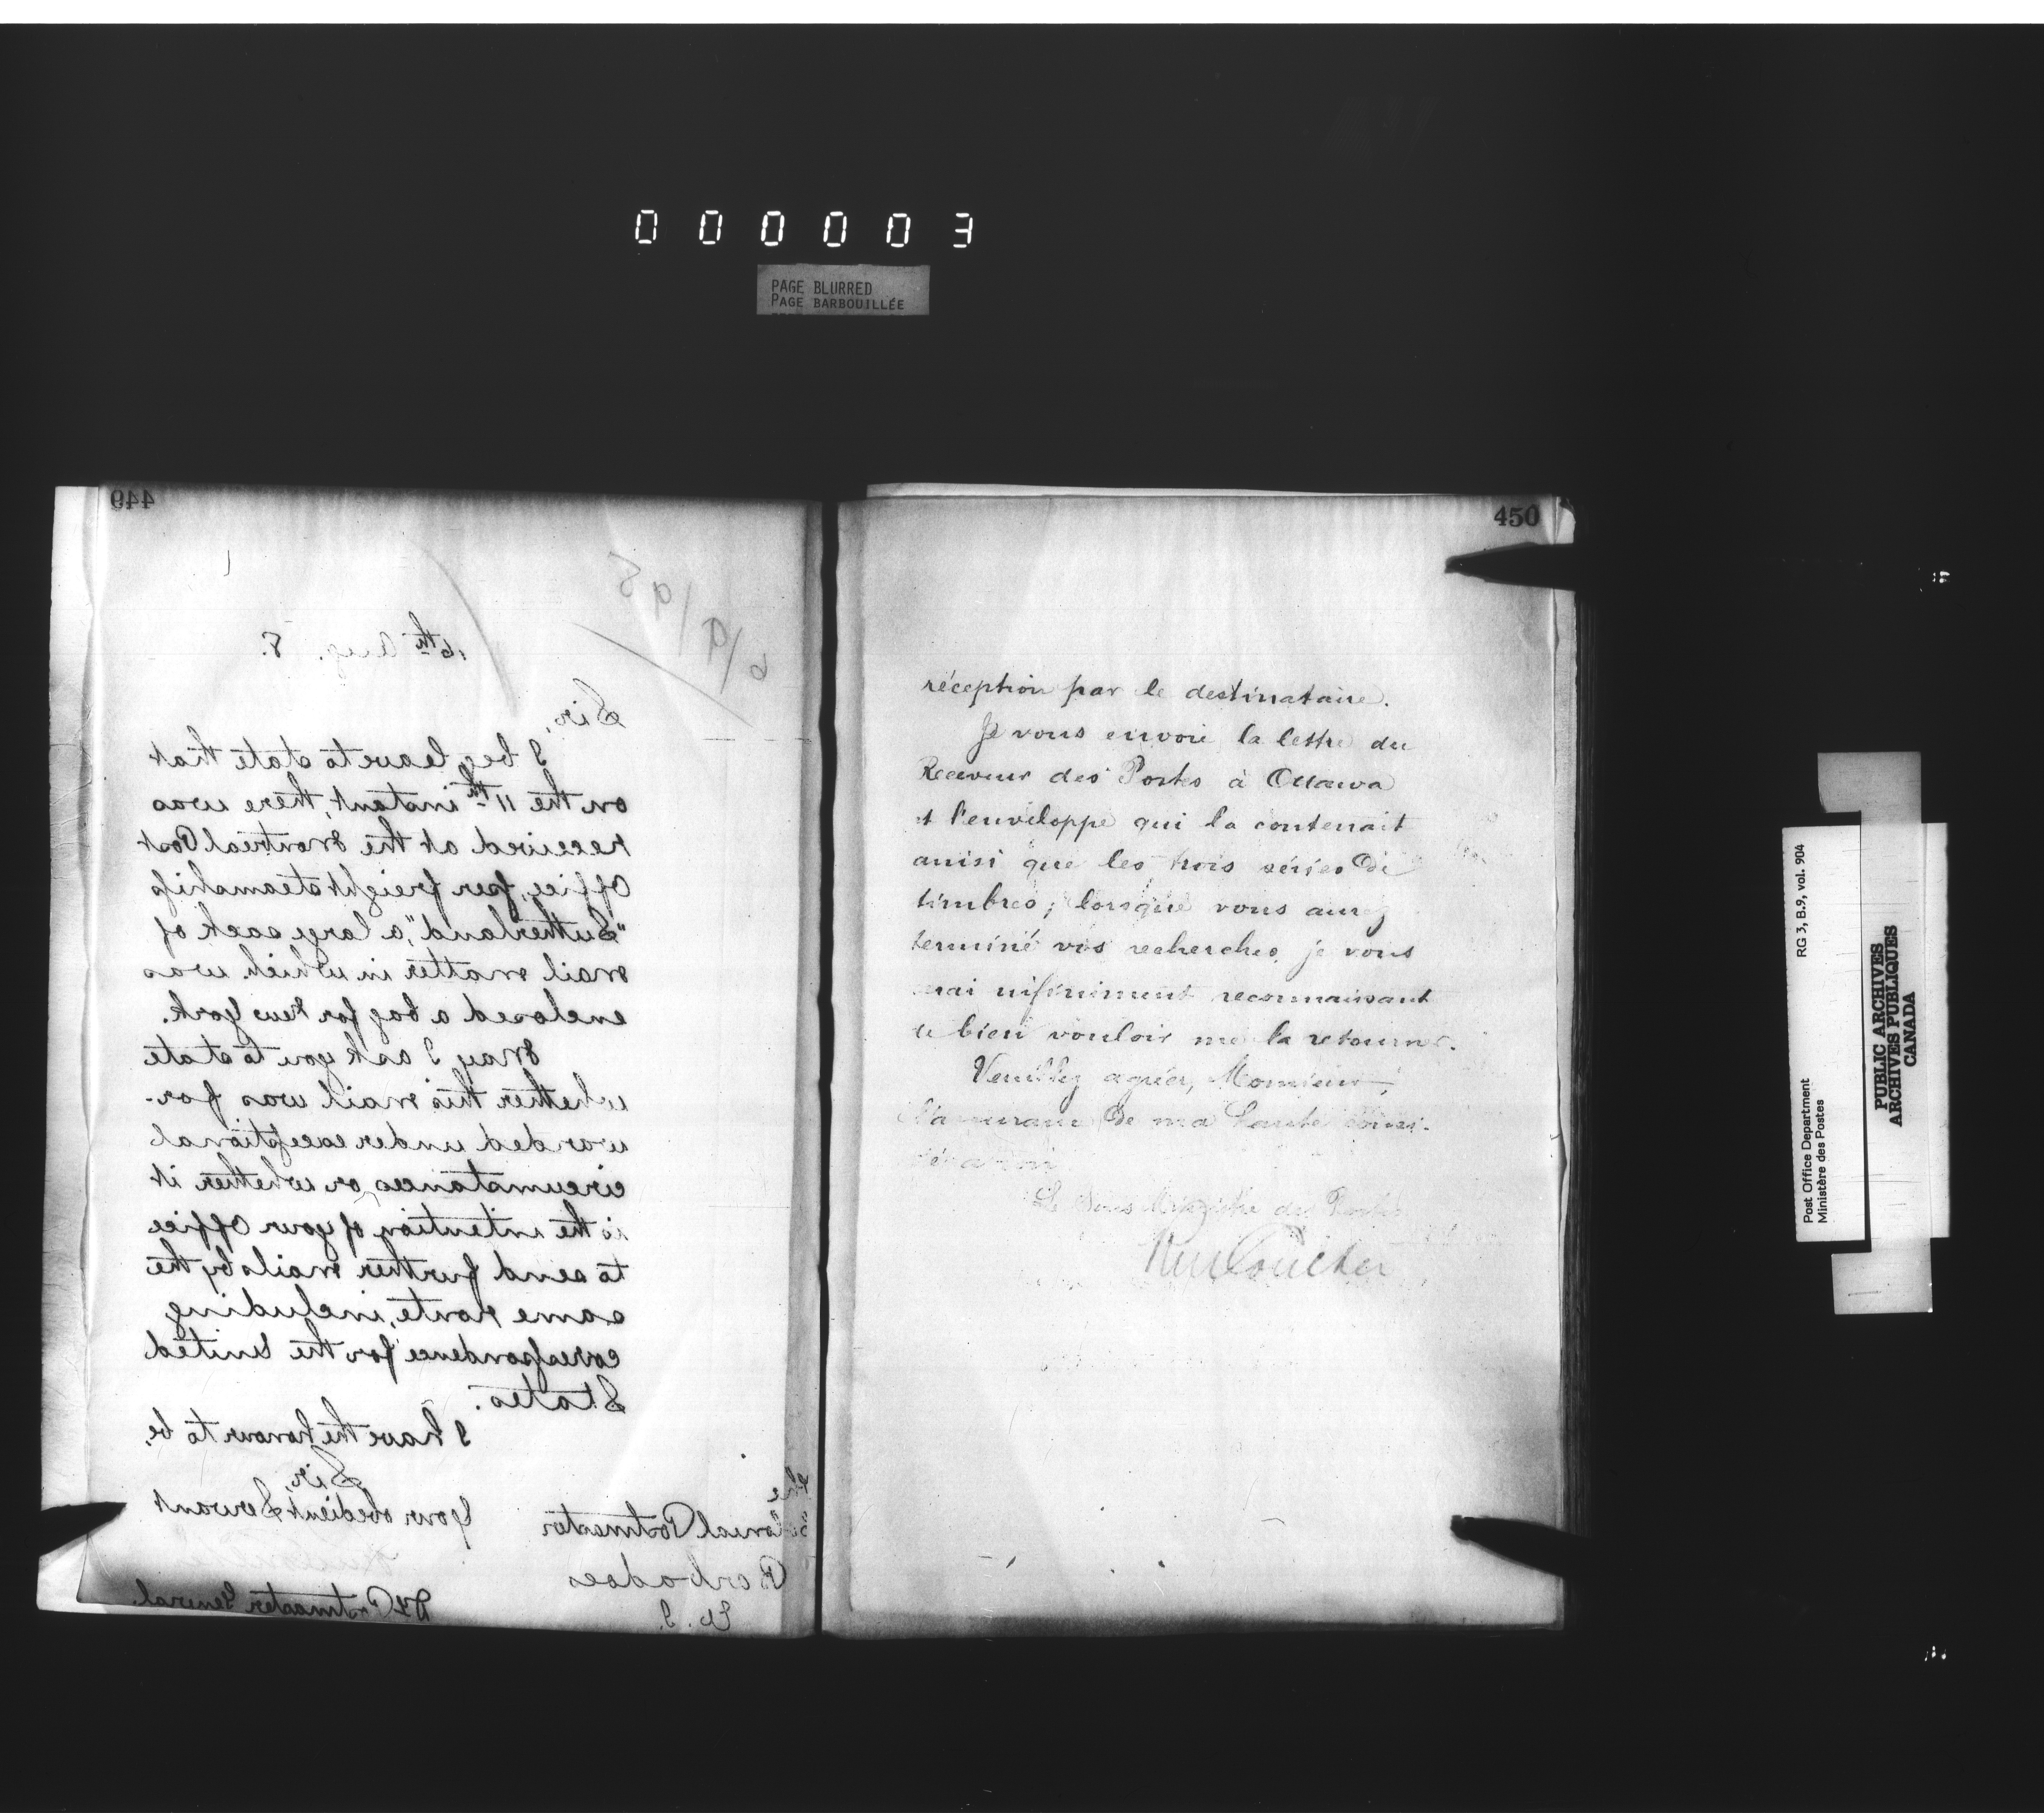 000003
PAGE BLURRED
PAGE BARBOUILLÉE
449
16th Aug. 8.
Sir,
I beg leave to state that
on the 11th instant, there was
received at the Montreal Post
Office, per freight steamship
"Sutherland", a large sack of
mail matter in which was
enclosed a bag for New York.
May I ask you to state
whether this mail was for-
warded under exceptional
circumstances or whether it
is the intention of your Office
to send further mails by the
same route, including
correspondence for the United
States.
I have the honour to be,
Sir,
Your obedient Servant
Dy Postmaster General.
The
Colonial Postmaster
Barbadoes
W. I.
450
réception par le destinataire.
Je vous envoie la lettre du
Receveur des Postes à Ottawa
et l'enveloppe qui la contenait
ainsi que les trois séries de
timbres; lorsque vous aurez
terminé vos recherches, je vous
serai infiniment reconnaissant
de bien vouloir me la retourner.
Veuillez agréer, Monsieur,
l'assurance de ma haute consi-
dération
Le Sous Ministre des Postes
Post Office Department
Ministère des Postes
RG 3, B.9, vol. 904
PUBLIC ARCHIVES
ARCHIVES PUBLIQUES
CANADA